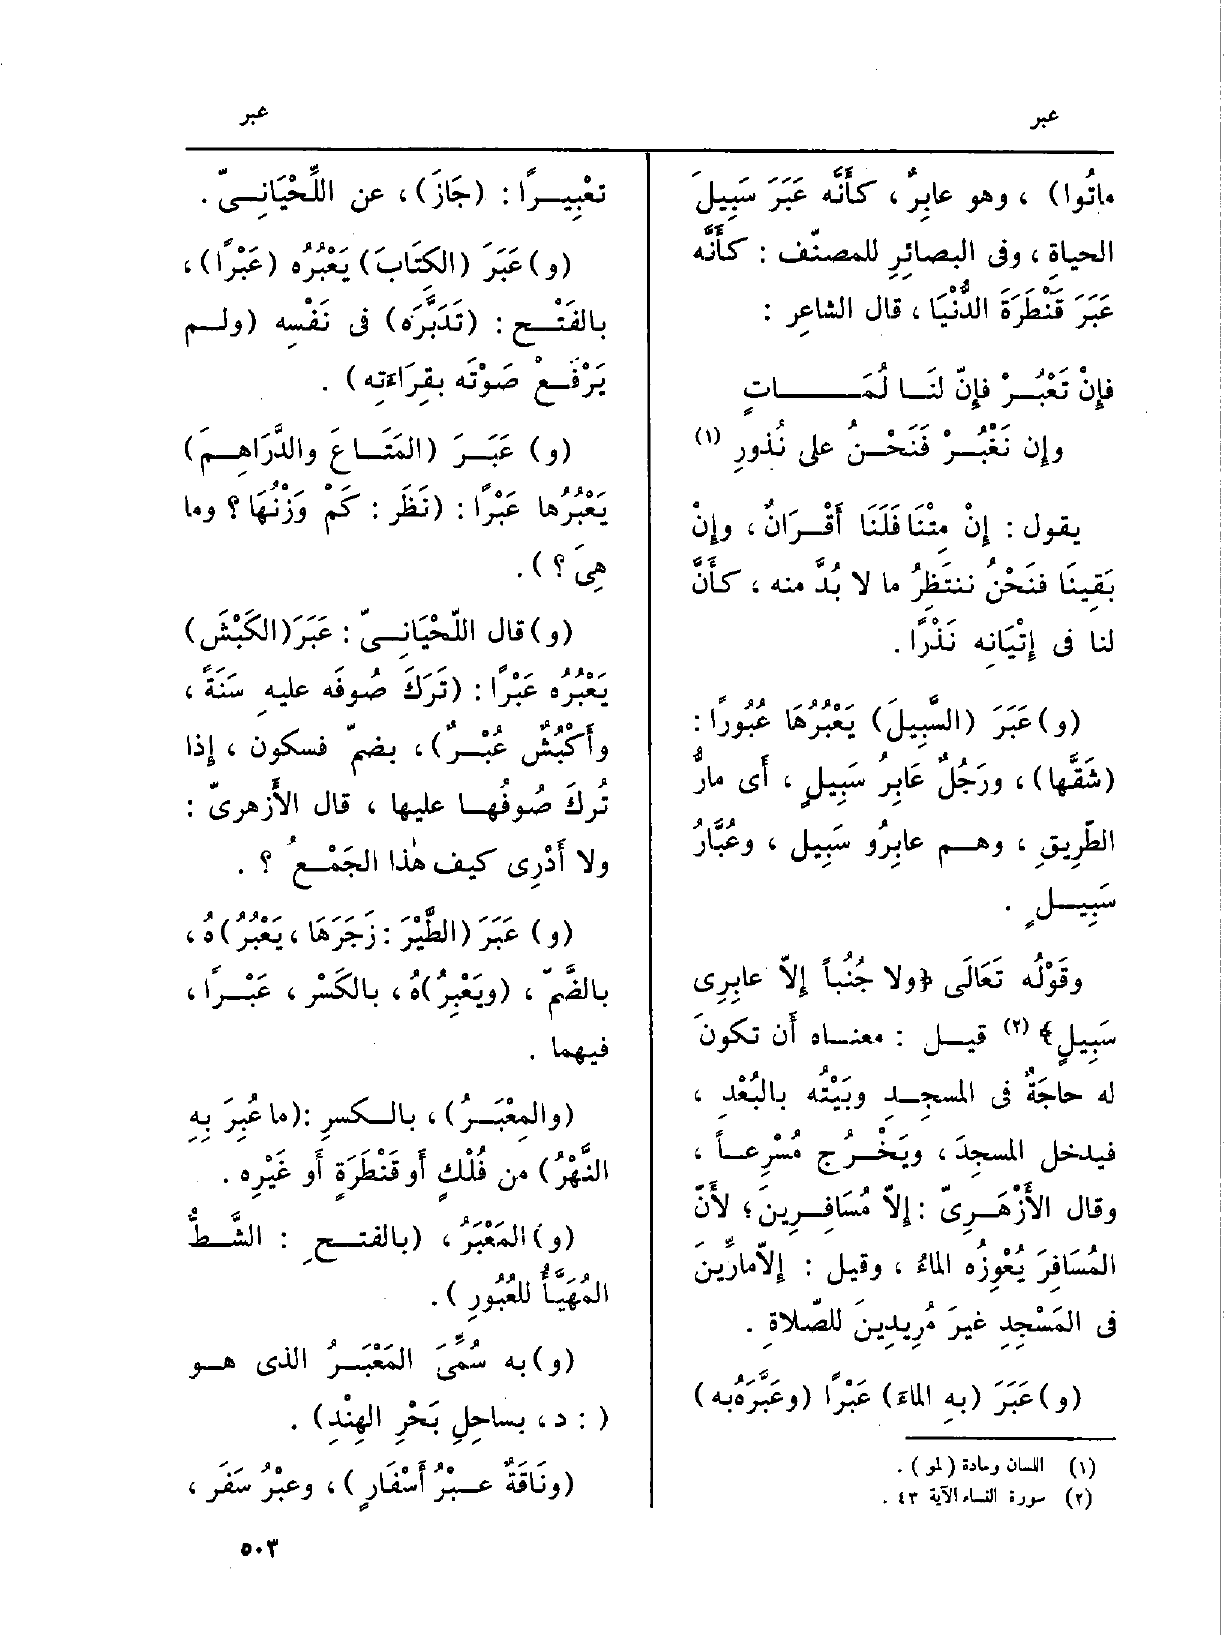 عبر
عبر
ماتُوا) ، وهو عابِرٌ ، كأَنَّه عَبَرَ سَبِيلَ
الحياةِ ، وفى البصائِرِ للمصنّف : كأَنَّه
عَبَرَ قَنْطَرَةَ الدُّنْيَا ، قال الشاعِر :
فإِنْ تَعْبُـرْ فإِنّ لنَـا لُمَـــــاتٍ
وإِن نَغْبُـرْ فَنَحْـنُ على نُذورِ (١)
يقول : إِنْ مِتْنَا فَلَنَا أَقْـرَانٌ ، وإِنْ
بَقِينَا فنَحْنُ ننتَظِرُ ما لا بُدَّ منه ، كأَنَّ
لنا فى إِتْيَانِه نَذْرًا .
(و) عَبَرَ (السَّبِيلَ) يَعْبُرُهَا عُبُورًا :
(شَقَّها) ، ورَجُلٌ عَابِرُ سَبِيلٍ ، أَى مارُّ
الطَّرِيقِ ، وهـم عابِرُو سَبِيل ، وعُبَّارُ
سَبِيـلٍ .
وقَوْلُه تَعَالَى ﴿ولا جُنُباً إِلاّ عابِرِى
سَبِيلٍ﴾ (٢) قيـل : معنـاه أَن تكونَ
له حاجَةٌ فى المسجِـدِ وبَيْتُه بالبُعْدِ ،
فيدخل المسجِدَ ، ويَخْـرُج مُسْرِعـاً ،
وقال الأَزْهَـرِىّ : إِلاّ مُسَافِـرِينَ ؛ لأَنّ
المُسَافِرَ يُعْوِزُه الماءُ ، وقيل : إِلاّ مارِّينَ
فى المَسْجِدِ غيرَ مُرِيدِينَ للصّلاةِ .
(و) عَبَرَ (بِهِ الماءَ) عَبْرًا (وعَبَّرَهُ به)
(١) اللسان ومادة (لمو) .
(٢) سورة النساء الآية ٤٣ .
تعْبِيـرًا : (جَازَ) ، عن اللِّحْيَانِـىّ .
(و) عَبَرَ (الكِتَابَ) يَعْبُرُه (عَبْرًا) ،
بالفَتْـح : (تَدَبَّرَه) فى نَفْسِه (ولـم
يَرْفَـعْ صَوْتَه بقِرَاءَتِه) .
(و) عَبَـرَ (المَتَـاعَ والدَّرَاهِـمَ)
يَعْبُرُها عَبْرًا : (نَظَر : كَمْ وَزْنُهَا ؟ وما
هِىَ ؟) .
(و) قال اللّحْيَانِـىّ : عَبَرَ (الكَبْشَ)
يَعْبُرُه عَبْرًا : (تَرَكَ صُوفَه عليهِ سَنَةً ،
وأَكْبُشٌ عُبْـرٌ) ، بضمّ فسكون ، إِذا
تُرِكَ صُوفُهـا عليها ، قال الأَزهرىّ :
ولا أَدْرِى كيف هٰذا الجَمْـعُ ؟ .
(و) عَبَرَ (الطَّيْرَ : زَجَرَهَا ، يَعْبُرُ)هُ ،
بالضَّمّ ، (ويَعْبِرُ)هُ ، بالكَسْر ، عَبْـرًا ،
فيهما .
(والمِعْبَـرُ) ، بالـكسرِ : (ما عُبِرَ بِهِ
النَّهْرُ) من فُلْكٍ أَو قَنْطَرَةٍ أَو غَيْرِه .
(و) المَعْبَرُ ، (بالفتـحِ : الشَّـطُّ
المُهَيَّأُ للعُبُورِ) .
(و) به سُمِّىَ المَعْبَـرُ الذى هـو
( : د ، بساحِلِ بَحْرِ الهِنْدِ) .
(ونَاقَةٌ عـبْرُ أَسْفَارٍ) ، وعبْرُ سَفَر ،
٥٠٣